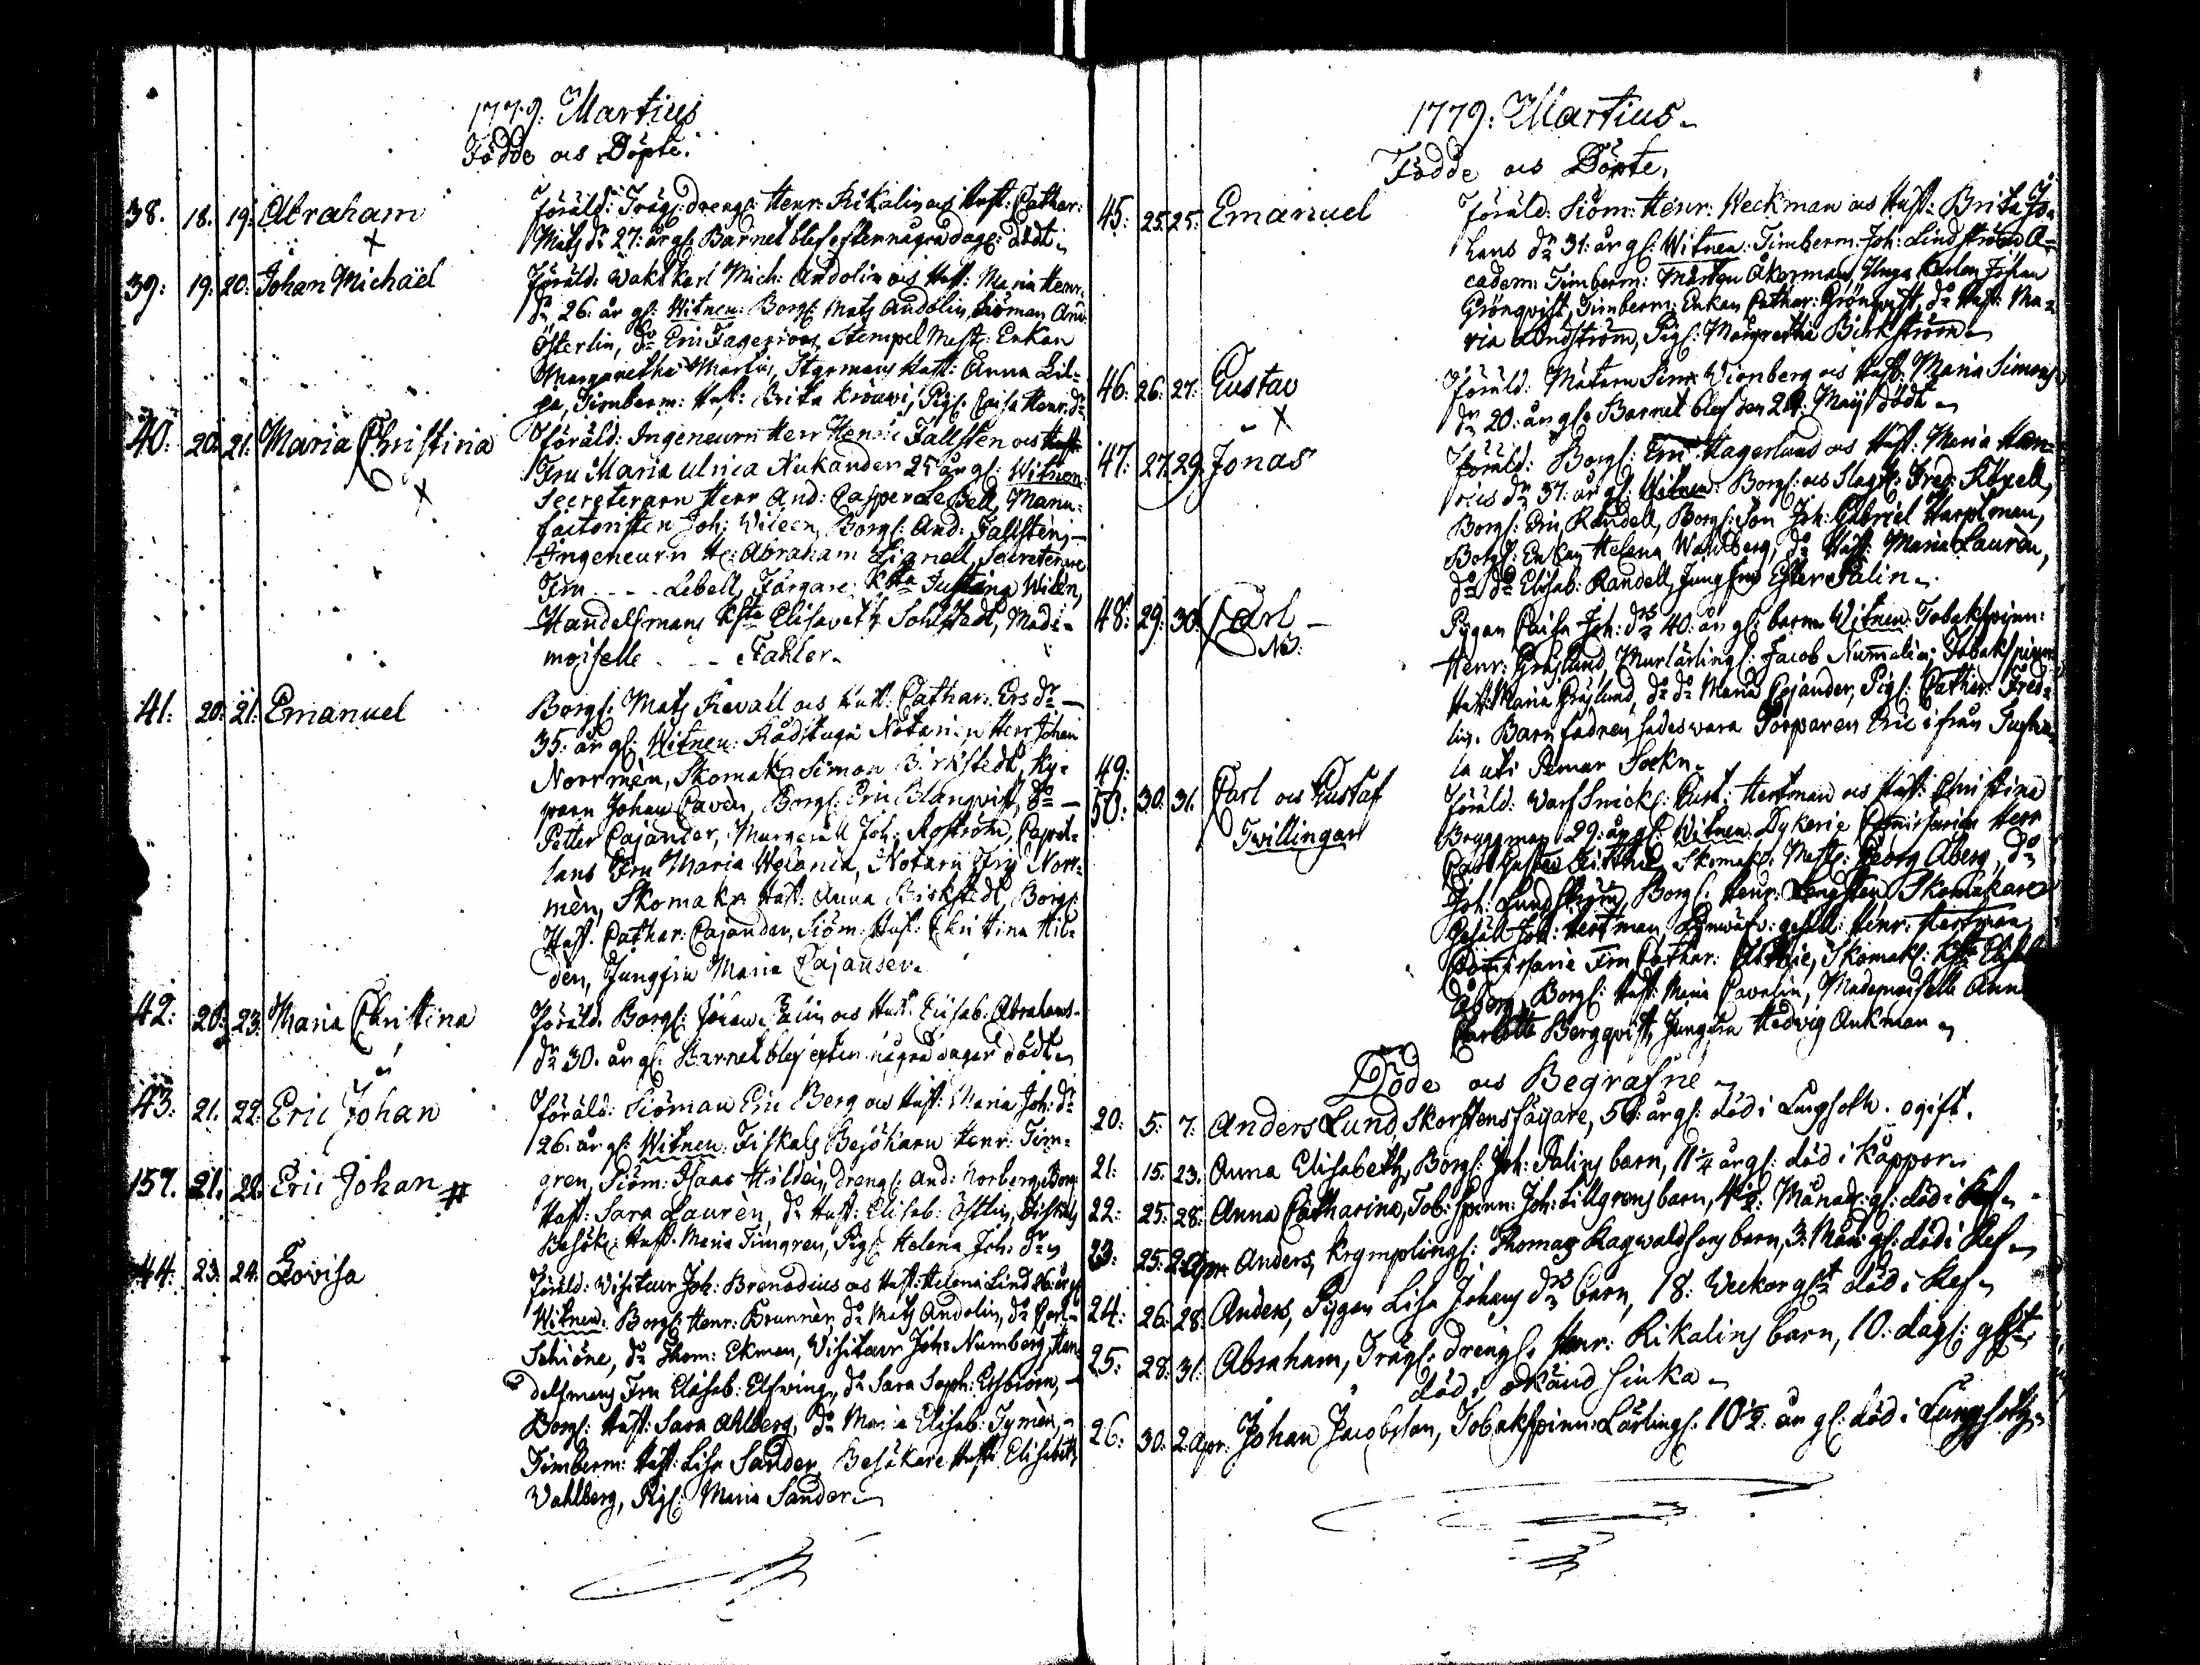 1779. Martius
Födde och Döpte.
38. 18. 19. Abraham Föräld: Trägs: drengs: Henr: Rikalin och Hust: Cathar:
Mats dr 27: år gl: Barnet blef efter några dagr: dödt
39: 19: 20: Johan Michaël Föräld: Waktkarl Mich: Andolin och Hust: Maria Henr:
dr 26: år gl: Witnen: Borgs: Mats Andolin, Siöman And:
Österlin, do Eric Fagerroos, Stempel Mest: Enkan
Margaretha Martin, Styrmans Hust: Anna Lil-
ja, Timberm: Hust: Brita Kröuvi, Pig: Caisa Henr: dr
40: 20: 21: Maria Christina Föräld: Ingeneuren Herr Henric Fallsten och Hust:
Fru Maria Ulrica Neukander 25 år gl: Witnen:
Secreteraren Herr And: Casper de Bell, Manu-
factoristen Joh: Wileen, Borgs: And: Fallsten,
Ingeneurn Hr: Abraham Lignell, Secreterare
Fru - - - Lebell, Färgare Hsta Justina Wilen,
Handelsmans Hsta Elisaveth Sohlstadt, Made-
moiselle - - Fahler.
41: 20: 21: Emanuel Borgs: Mats Kevall och Hust: Cathar: Ers dr
35: år gl: Witnen: Rådstugu Notarien Herr Johan
Norrmèn, Skomak: Simon Birkstedt, Ky-
paren Johan Cavèn, Borgs: Eric Blanqvist, do
Petter Cajander, Murgesäll Joh: Roström, Capel-
lans Fru Maria Helenia, Notarii Fru Norr-
mèn, Skomakr: Hust: Anna Birkstedt, Borgs:
Hust: Cathar: Cajander, Siöm: Hust: Christina Hil-
dèn, Jungfru Maria Cajander.
42: 20: 23: Maria Christina Föräld: Borgs: Johan Palin och Hust: Elisab: Abrahams
dr 30. år gl: Barnet blef efter några dagar dödt
43: 21. 22: Eric Johan Föräld: Siöman Eric Berg och Hust: Maria Joh: dr
26: år gl: Witnen: Fiskals Besökaren Henr: Tim-
157. 21. 22: Eric Johan # gren, Siöm: Isaac Hildèn, drengs: And: Norberg, Borgs:
Hust: Sara Laurèn, do Hust: Elisab: Östlin, Fiskals
Besök: Hust: Maria Timgren, Pig: Helena Joh: dr
44: 23: 24: Lovisa Föräld: Visiteur Joh: Brenadius och Hust: Helena Lind
Witnen: Borgs: Henr: Brunnèr, do Mats Andolin, do Carl
Schiöne, do Thom: Ekman, Visiteur Joh: Numberg, Han-
delsmans Fru Elisab: Elfwing, do Sara Soph: Ersbrörn,
Borgs: Hust: Sara Ahlberg, do Maria Elisab: Tymèn,
Timberm: Hust: Lisa Sander, Besökare Hust: Elisabeth
Wahlberg, Pig: Maria Sander
1779: Martius
Födde och Döpte.
45: 25: 25: Emanuel Föräld: Siöm: Henr: Weckman och Hust: Brita Jo-
hans dr 31: år gl: Witnen: Timberm: Joh: Lindström A-
cadem: Timberm: Mårten Åkerman, Unga Karlen Johan
Grönqvist, Timberm: Enkan Cathar: Grönqvist, do Hust: Ma-
ria Lindström, Pig: Margretha Birkström
46: 26: 27: Gustav Föräld: Mätaren Simon Wienberg och Hust: Maria Simons
dr 20: år gl: Barnet blef den 24: Maÿ dödt
47: 27: 29: Jonas Föräld: Borgs: Eric Hagerlund och Hust: Maria Hen-
rics dr 37: år gl: Witnen: Borgs: och Slagt: Fred: Röxell,
Borgs: Eric Randell, Borgs: son Joh: Gabriel Harpman,
Borgs: Enkan Helena Wahlberg, do Hust: Maria Laurèn,
do do Elisab: Randell, Jungfru Ester Palin
48: 29: 30: Carl NB: Pygan Caisa Joh: drs 40: år gl: barn Witnen: Tobakspinn:
Henr: Gröslund, Murlärling: Jacob Nummelin, Tobakspinn:
Hust: Maria Gröslund, do do Maria Cajander, Pig: Cathar: Fred-
lin. Barnfadren sades wara Torparen Eric ifrån
la uti Pemar Sockn
49:
50: 30: 31. Carl och Gustaf Föräld: Warf Snick: Gust: Hertman och Hust: Christina
Twillingar Bryggman 29: år gl: Witnen: Dykerie Commissarien Herr
Carl Gustav Kitthie, Skomak: Mest: Georg Åberg, do
Joh: Lundström, Borgs: Henr: Lengsten, Skomakare
Gesäll Joh: Hertman, Lynwäfv: gesäll: Henr: Hertman,
Commissarie Fru Cathar: Kitthie, Skomak: Hsta Elisab
Åberg, Borgs: Hust: Maria Cavelin, Mademoiselle Ann
Charlotta Bergqvist, Jungfru Hedvig Aukman
Döde och Begrafne
20: 5: 7: Anders Lund, Skorstensfägare, 56: år gl: död i Lungsoth. ogift.
21: 15: 23. Anna Elisabeth, Borgs: Joh: Palins barn, 11 1/4 år gl: död i Kåppor
22: 25: 28: Anna Catharina, Tob: spinn: Joh: Lillgrens barn, 4 1/2: Månadr: gl: död i Ref
23: 25: 2 Apr: Anders, Krymplings: Thomas Ragwaldsons barn, 3: Mån: gl: död i Ref
24: 26: 28: Anders, Pygan Lisa Johans drs barn, 18: Weckor glt död i Ref
25: 28: 31: Abraham, Trägs: drengs: Henr: Rikalins barn, 10: dagr: glt
död i okänd siuka
26: 30: 2 Apr: Johan Jacobsson, Tobakspinn: Lärling: 10 1/2: år gl: död i Lungsoth